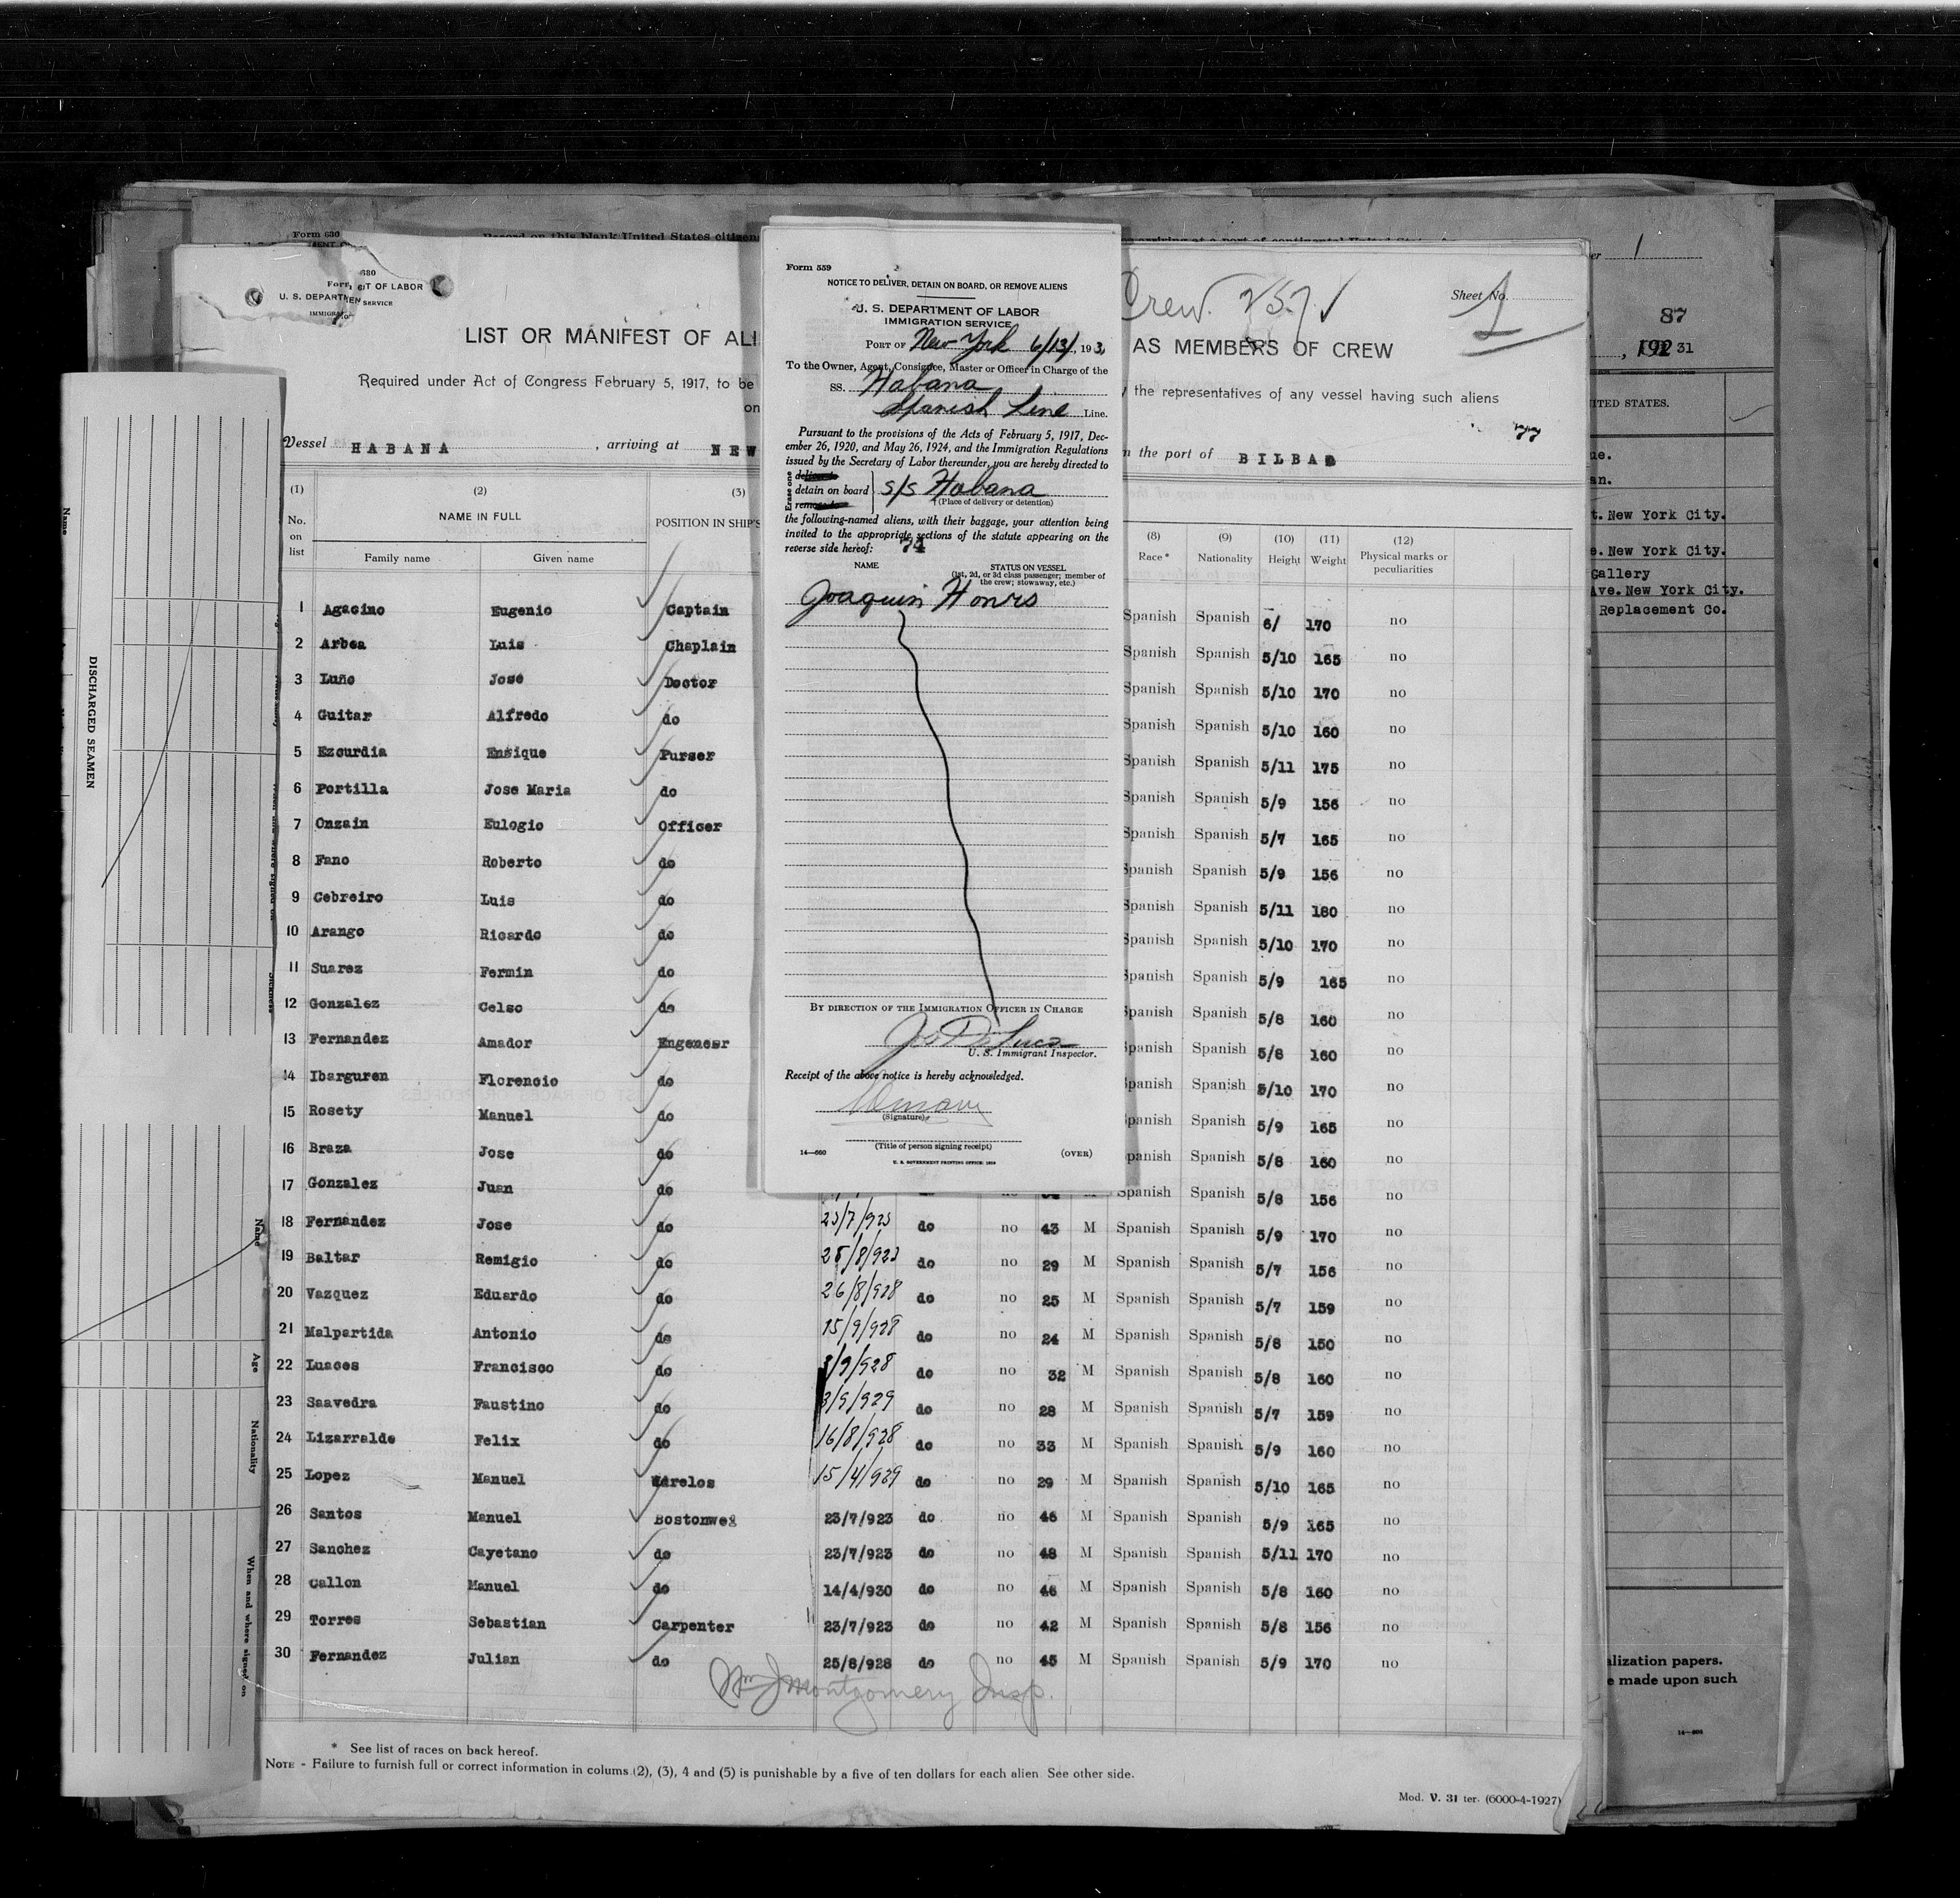 Form 630
Record on this blank United States citizen
1
87
192 31
UNITED STATES.
t. New York City.
e. New York City.
Gallery
Ave. New York City.
Replacement Co.
alization papers.
e made upon such
680
U. S. DEPARTMENT OF LABOR
LIST OR MANIFEST OF ALI
AS MEMBERS OF CREW
Crew. 257
Sheet No. 1
Required under Act of Congress February 5, 1917, to be
the representatives of any vessel having such aliens
on
Vessel HABANA, arriving at NEW
the port of BILBAO
(1) (2) (3) (8) (9) (10) (11) (12)
No. on list
NAME IN FULL
Family name Given name
POSITION IN SHIP'S
Race * Nationality Height Weight Physical marks or peculiarities
1 Agacino Eugenio Captain Spanish Spanish 6/ 170 no
2 Arbea Luis Chaplain Spanish Spanish 5/10 165 no
3 Luño José Doctor Spanish Spanish 5/10 170 no
4 Guitar Alfredo do Spanish Spanish 5/10 160 no
5 Ezcurdia Enrique Purser Spanish Spanish 5/11 175 no
6 Portilla Jose Maria do Spanish Spanish 5/9 156 no
7 Onzain Eulogio Officer Spanish Spanish 5/7 165 no
8 Fano Roberto do Spanish Spanish 5/9 156 no
9 Cebreiro Luis do Spanish Spanish 5/11 180 no
10 Arango Ricardo do Spanish Spanish 5/10 170 no
11 Suarez Fermin do Spanish Spanish 5/9 165 no
12 Gonzalez Celso do Spanish Spanish 5/8 160 no
13 Fernandez Amador Engeneer Spanish Spanish 5/8 160 no
14 Ibarguren Florencio do Spanish Spanish 5/10 170 no
15 Rosety Manuel do Spanish Spanish 5/9 165 no
16 Braza Jose do Spanish Spanish 5/8 160 no
17 Gonzalez Juan do Spanish Spanish 5/8 156 no
18 Fernandez Jose do 23/7/923 do no 43 M Spanish Spanish 5/9 170 no
19 Baltar Remigio do 25/8/923 do no 29 M Spanish Spanish 5/7 156 no
20 Vazquez Eduardo do 26/8/928 do no 25 M Spanish Spanish 5/7 159 no
21 Malpartida Antonio do 15/9/928 do no 24 M Spanish Spanish 5/8 150 no
22 Luaces Francisco do /9/928 do no 32 M Spanish Spanish 5/8 160 no
23 Saavedra Faustino do 3/5/929 do no 28 M Spanish Spanish 5/7 159 no
24 Lizarralde Felix do 16/8/928 do no 33 M Spanish Spanish 5/9 160 no
25 Lopez Manuel Wirelos 15/4/929 do no 29 M Spanish Spanish 5/10 165 no
26 Santos Manuel Bostonwei 23/7/923 do no 46 M Spanish Spanish 5/9 165 no
27 Sanchez Cayetano do 23/7/923 do no 48 M Spanish Spanish 5/11 170 no
28 Callon Manuel do 14/4/930 do no 46 M Spanish Spanish 5/8 160 no
29 Torres Sebastian Carpenter 23/7/923 do no 42 M Spanish Spanish 5/8 156 no
30 Fernandez Julian do 25/8/928 do no 45 M Spanish Spanish 5/9 170 no
Wm J Montgomery Insp.
* See list of races on back hereof.
NOTE - Failure to furnish full or correct information in colums (2), (3), 4 and (5) is punishable by a five of ten dollars for each alien See other side.
Mod. V. 31 ter. (6000-4-1927)
Form 559
NOTICE TO DELIVER, DETAIN ON BOARD, OR REMOVE ALIENS
U. S. DEPARTMENT OF LABOR
IMMIGRATION SERVICE
PORT OF New York 6/13/, 193
To the Owner, Agent, Consignee, Master or Officer in Charge of the
SS. Habana
Spanish Line Line.
Pursuant to the provisions of the Acts of February 5, 1917, Dec-
ember 26, 1920, and May 26, 1924, and the Immigration Regulations
issued by the Secretary of Labor thereunder, you are hereby directed to
Erase one
detain on board } S/S Habana
(Place of delivery or detention)
the following-named aliens, with their baggage, your attention being
invited to the appropriate sections of the statute appearing on the
reverse side hereof: 74
NAME STATUS ON VESSEL
(1st, 2d, or 3d class passenger; member of
the crew; stowaway, etc.)
Joaquin
BY DIRECTION OF THE IMMIGRATION OFFICER IN CHARGE
U. S. Immigrant Inspector.
Receipt of the above notice is hereby acknowledged.
(Signature)
(Title of person signing receipt)
14—660 (OVER)
U. S. GOVERNMENT PRINTING OFFICE
DISCHARGED SEAMEN
Name
Name
Age
Nationality
When and where signed on